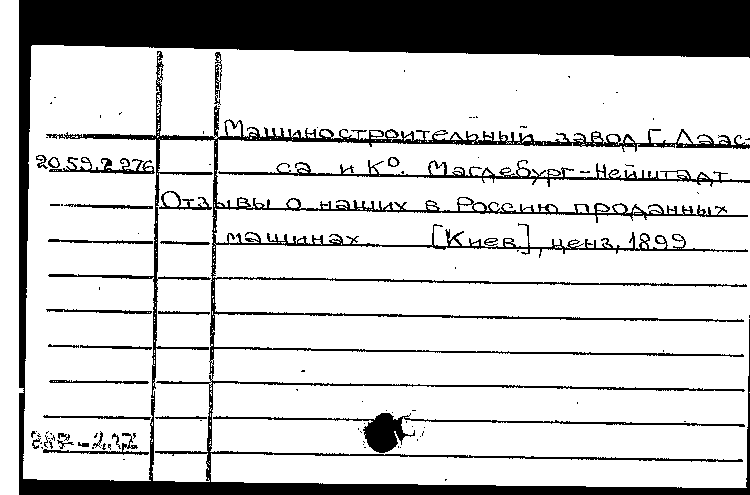 Машиностроительный завод Г. Лаас-
20.59.2.276 са и К⁰. Магдебург-Нейштадт
Отзывы о наших в Россию проданных
машинах [Киев], ценз, 1899